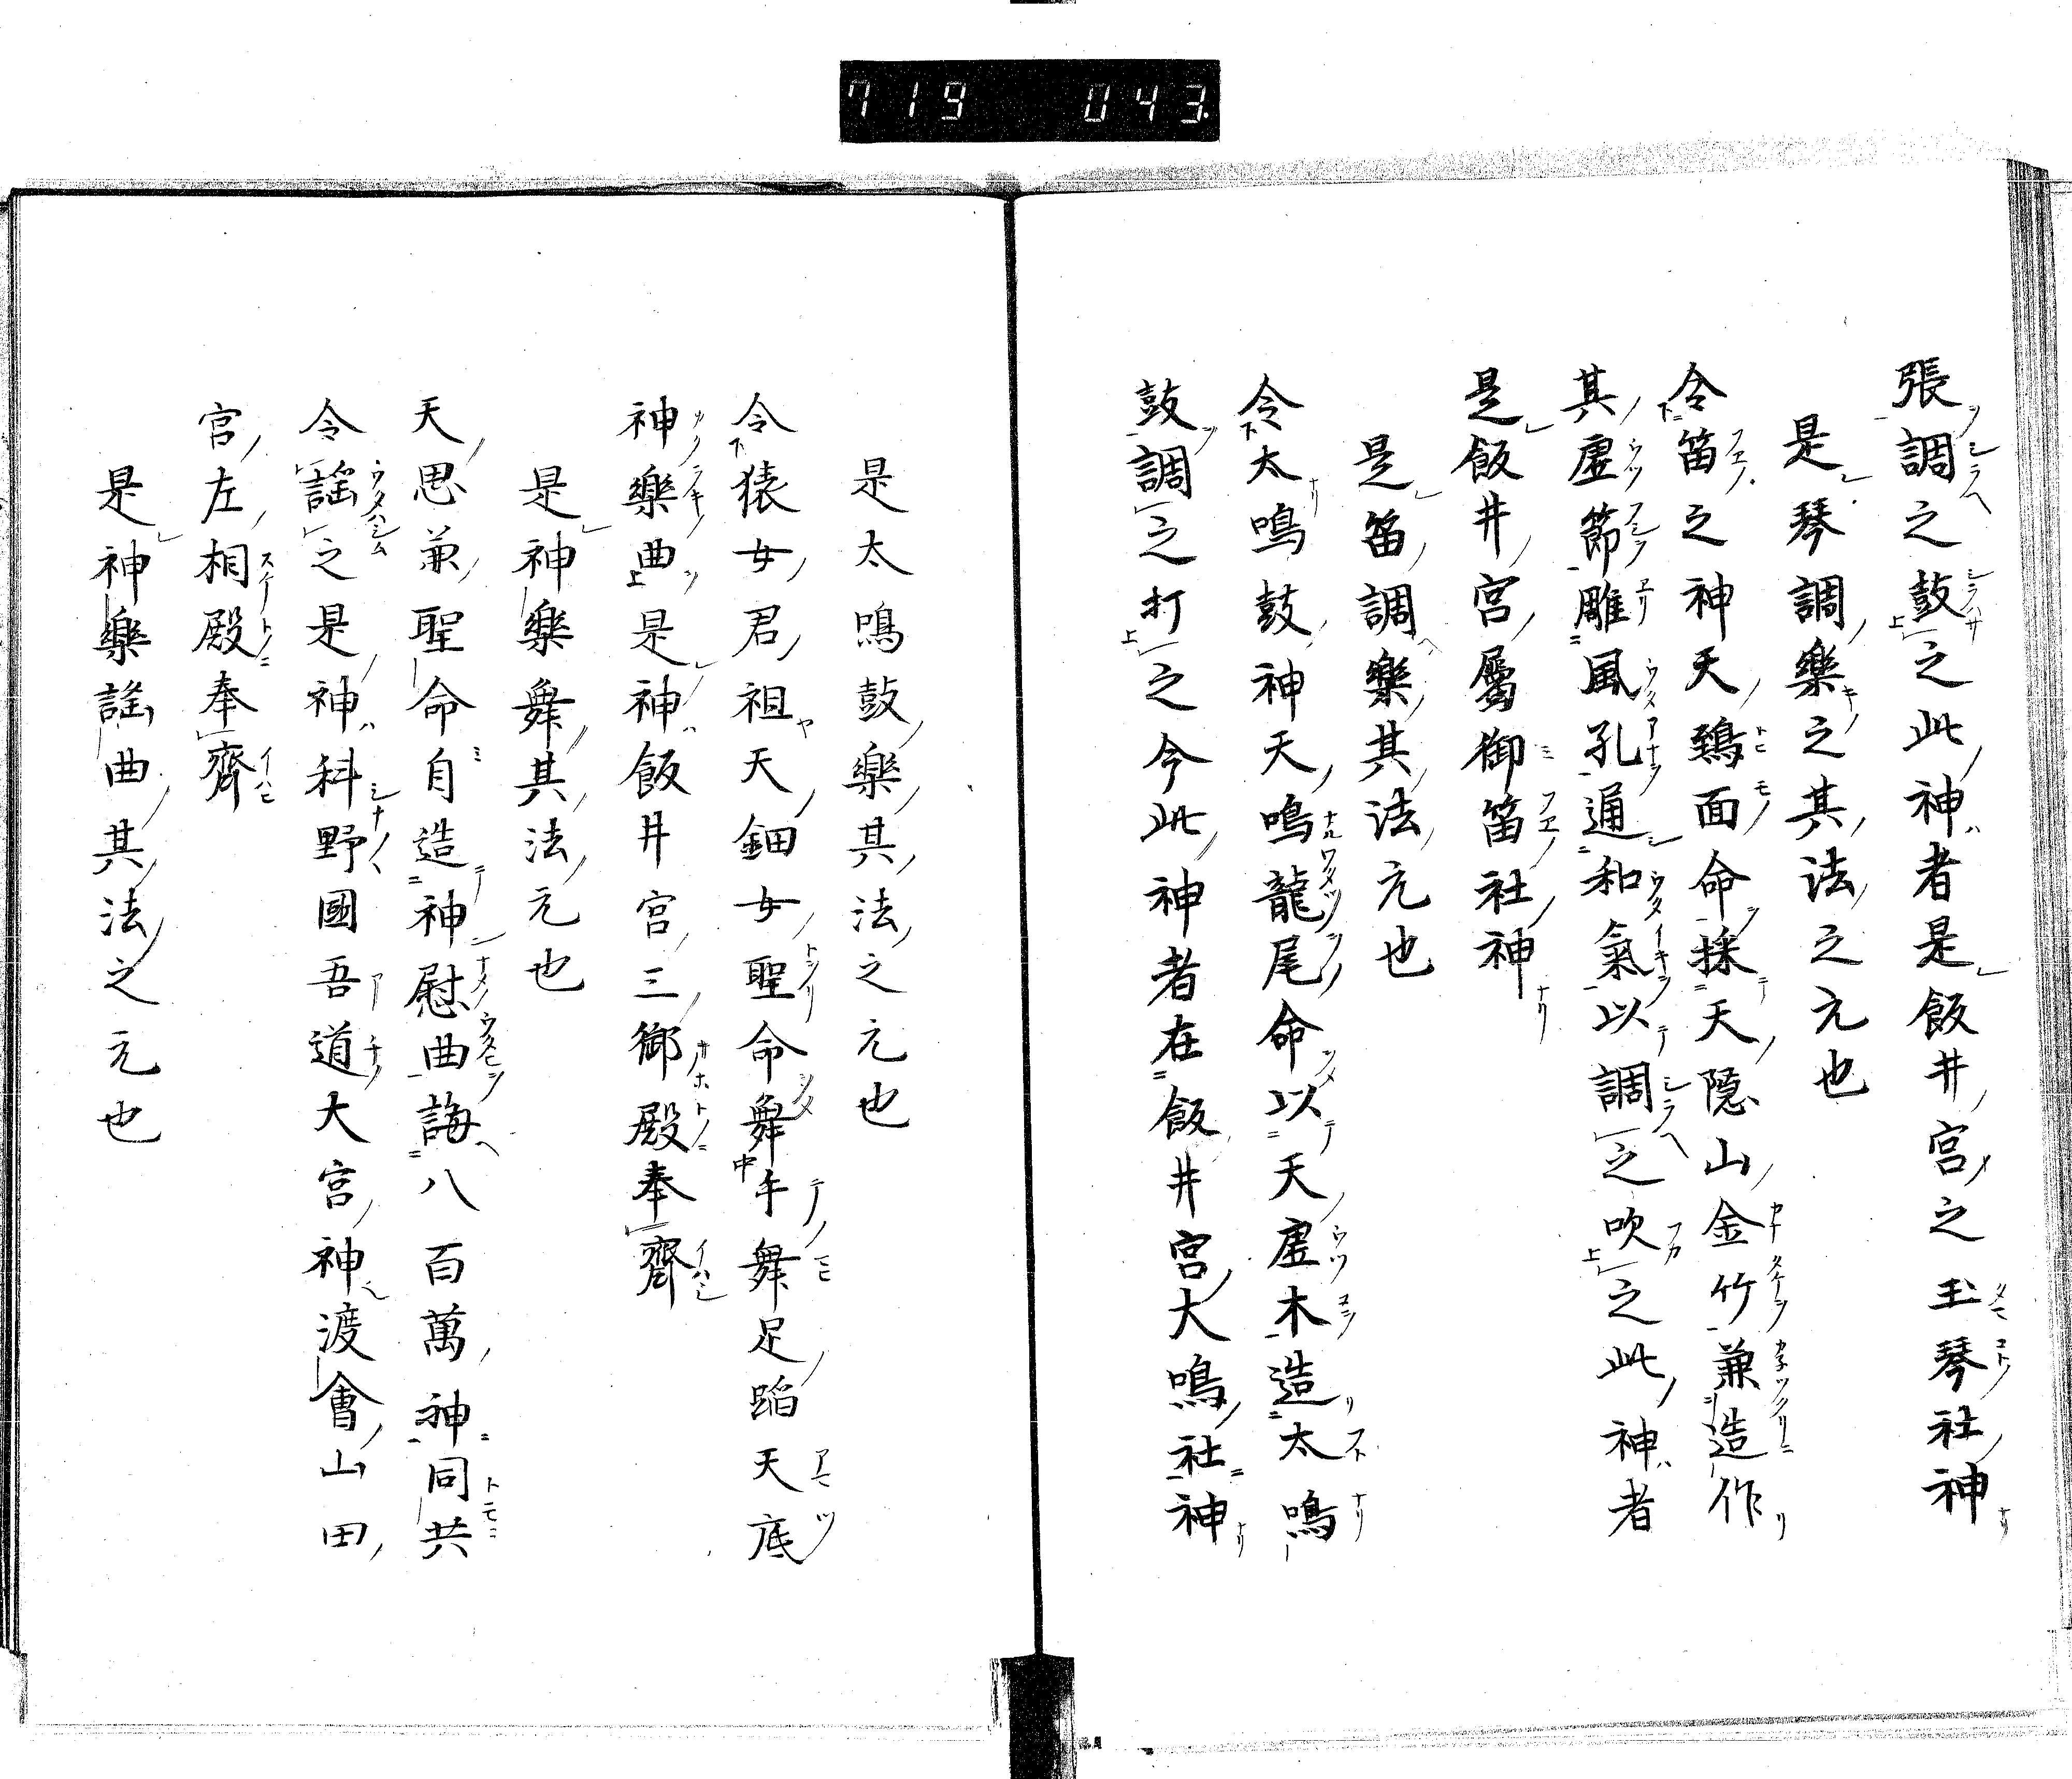 719 043
張調之鼓之此神者是飯井宮之玉琴社神
是琴調樂之其法之元也
令笛之神天鵄面命採天隠山金竹兼造作
其虚節雕風孔通和氣以調之吹之此神者
是飯井宮属御笛社神
是笛調樂其法元也
令太鳴鼓神天鳴龍尾命以天虚木造太鳴
鼓調之打之今此神者在飯井宮大鳴社神
是太鳴鼓樂其法之元也
令猿女君祖天鈿女聖命舞手舞足蹈天底
神樂曲是神飯井宮三御殿奉齋
是神樂舞其法元也
天思兼聖命自造神慰曲誨八百萬神同共
令謡之是神科野國吾道大宮神渡會山田
宮左相殿奉齋
是神樂謡曲其法之元也